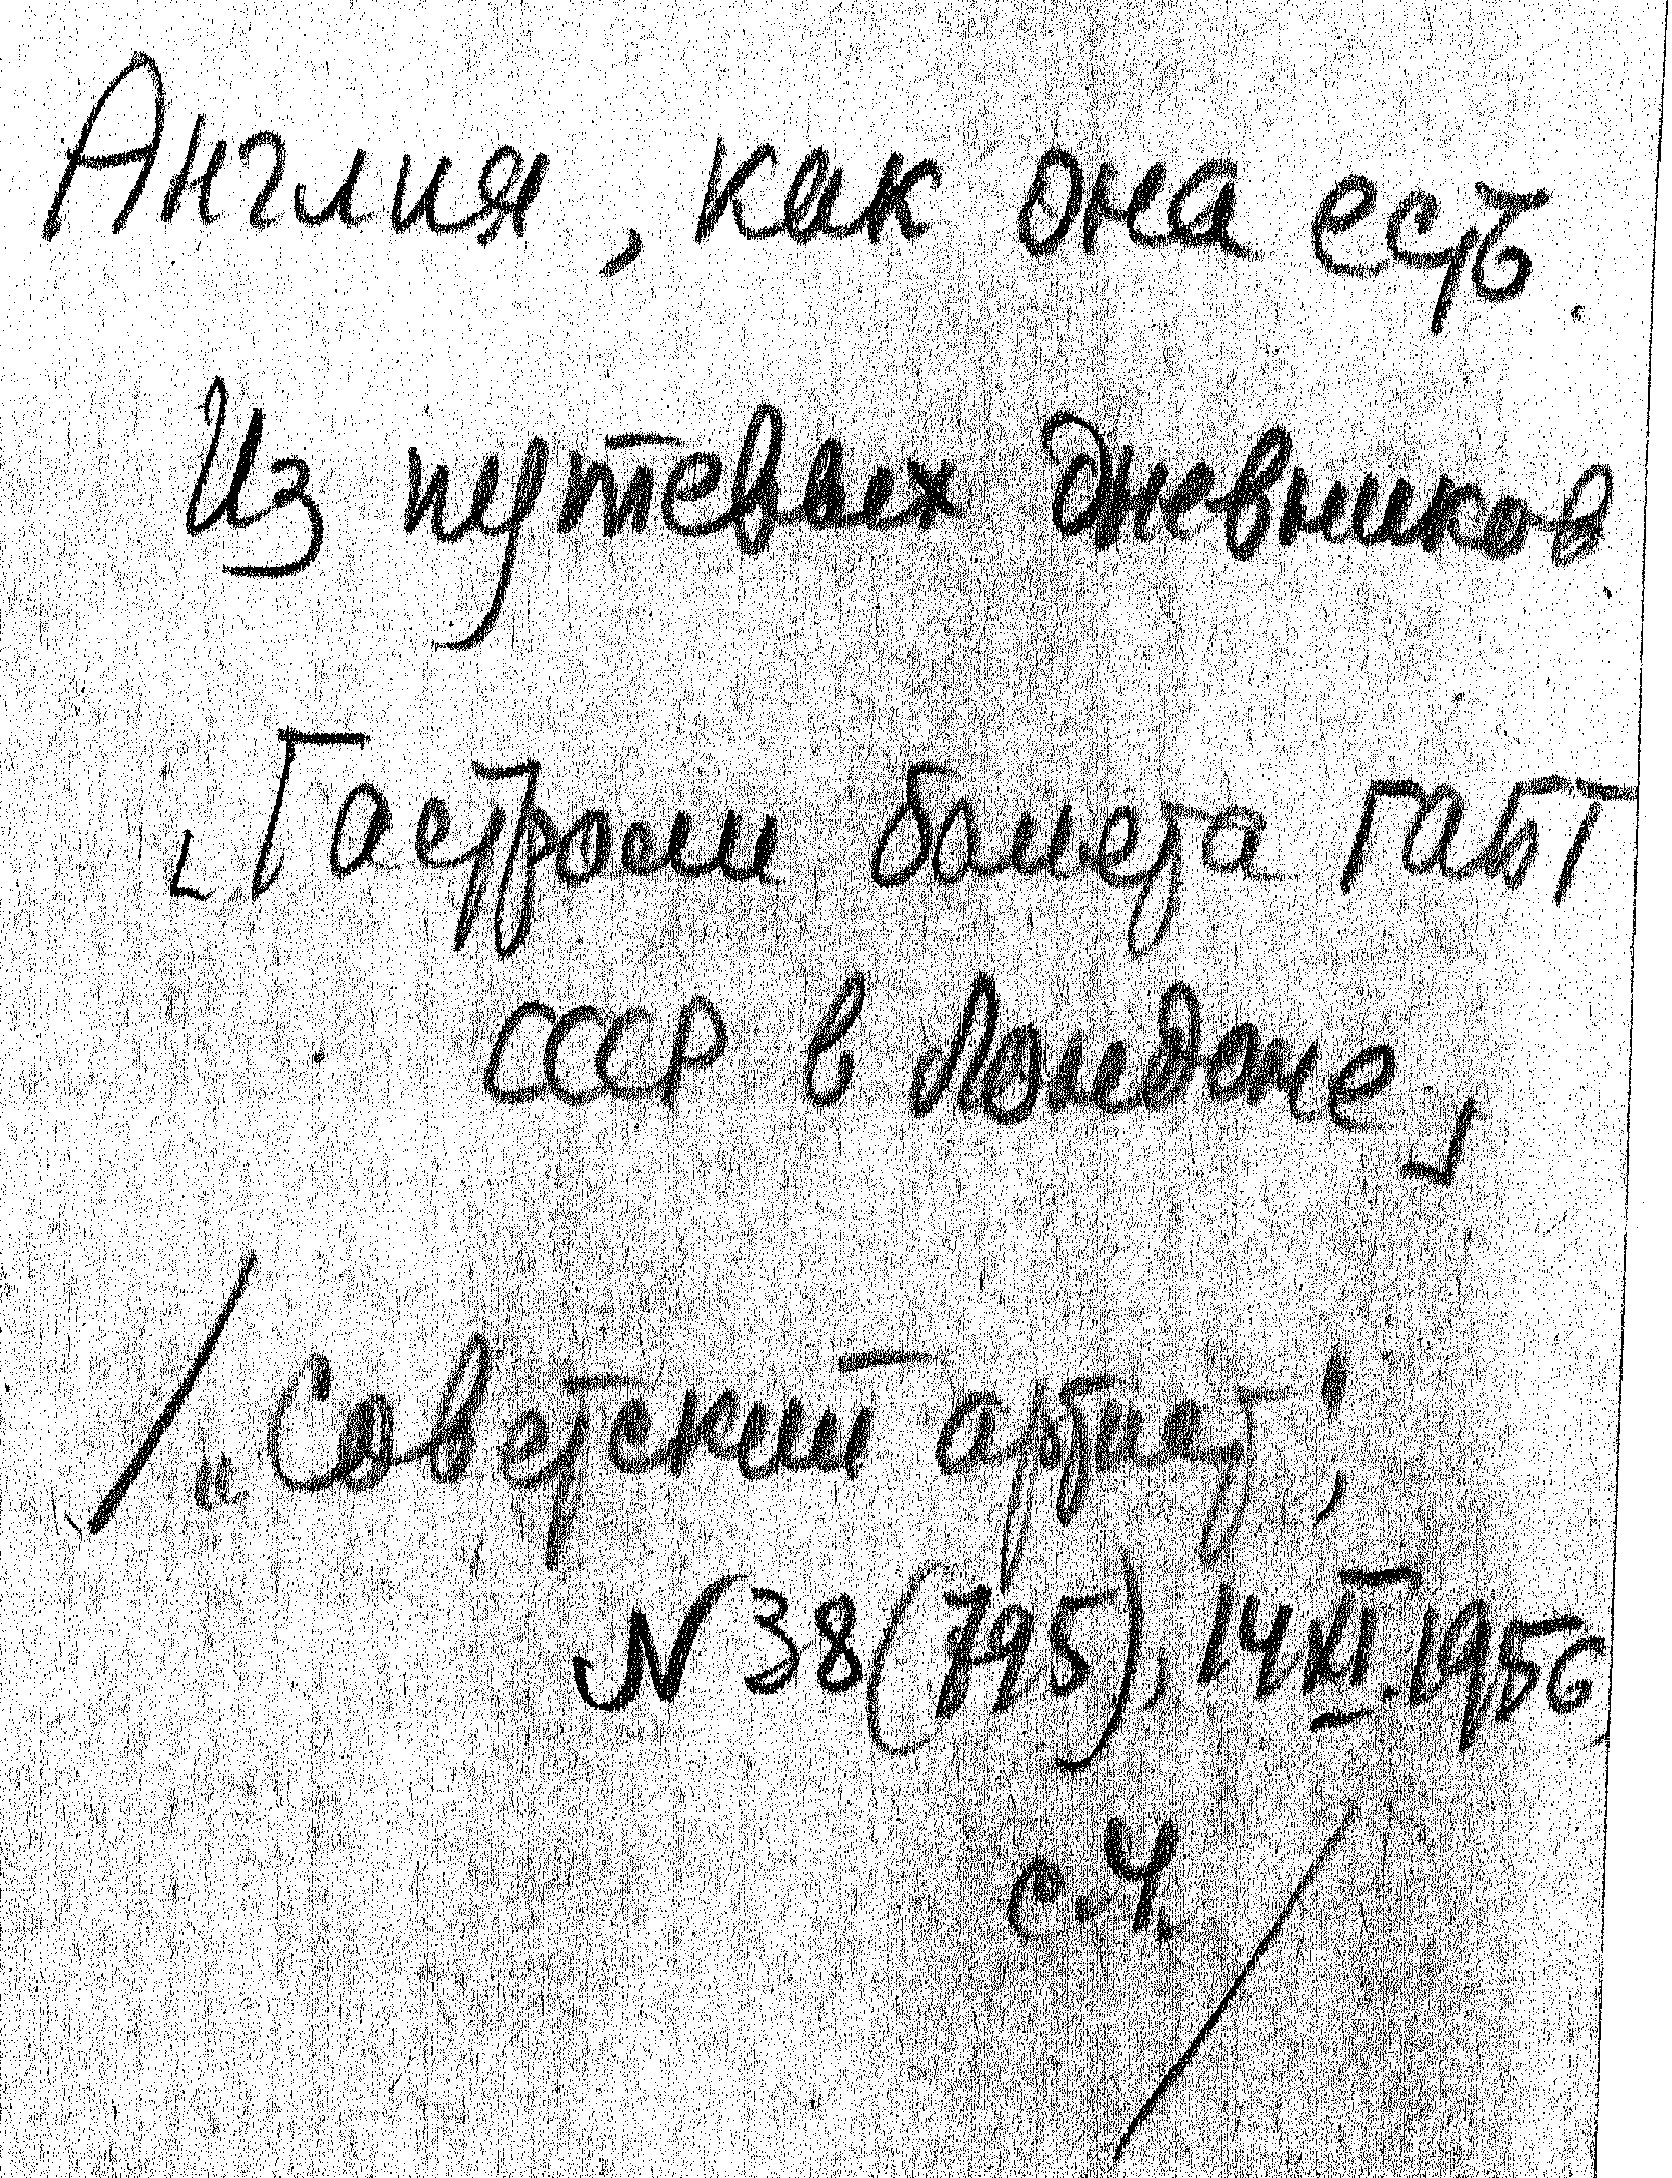 Англия, как она есть.
Из путевых дневников.
[Гастроли балета ГАБТ
СССР в Лондоне]
/„Советский артист",
№ 38 (795), 14 XI. 1956,
с. 4. /